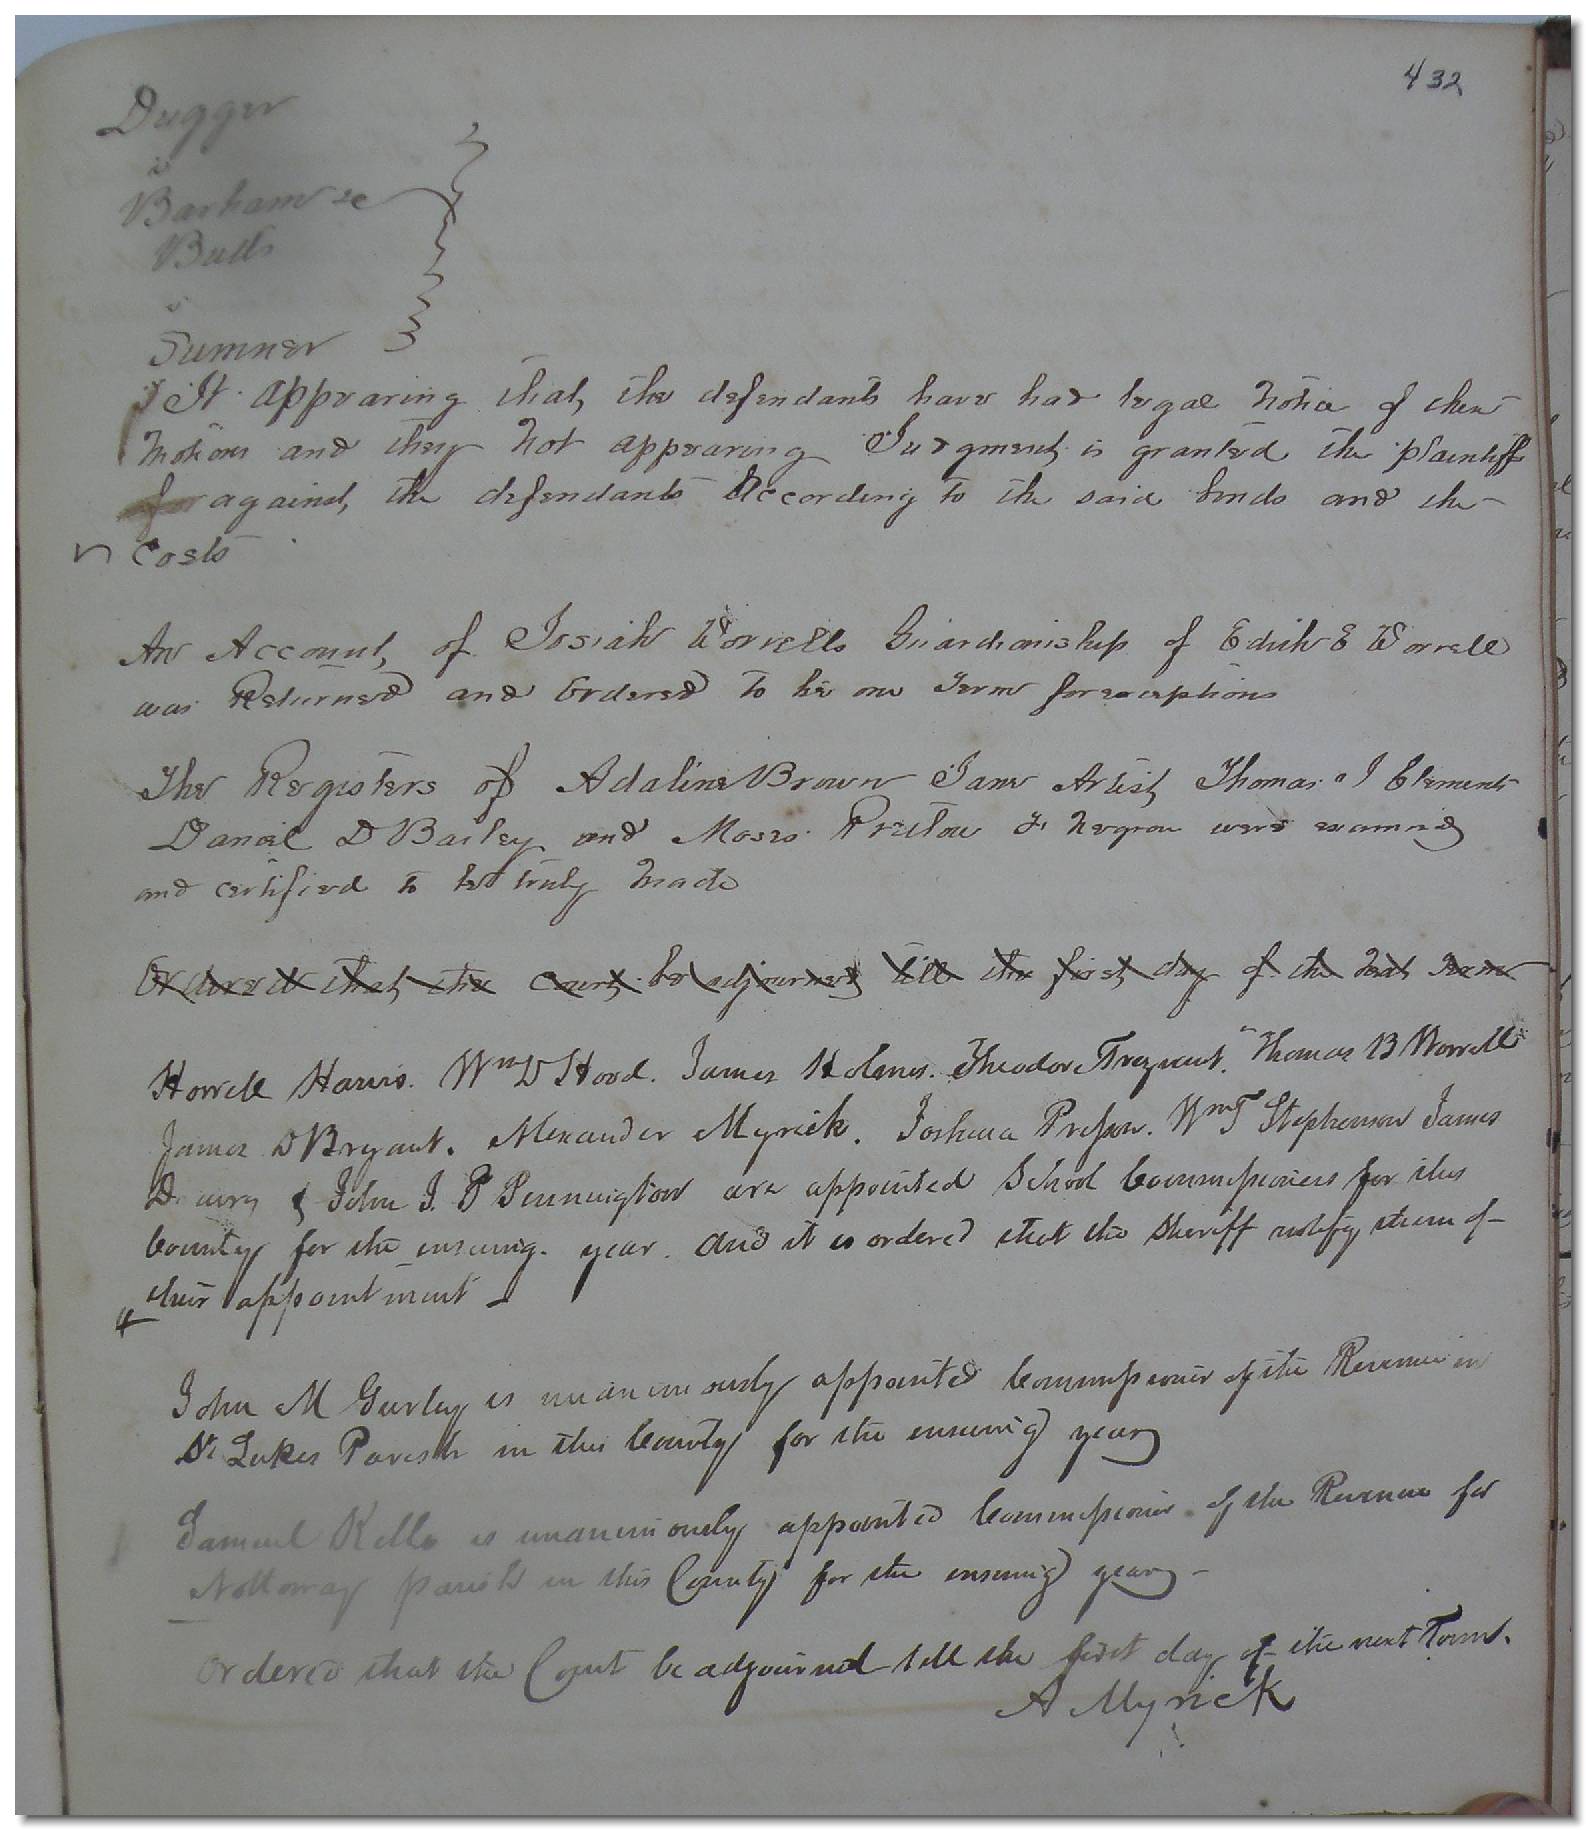 432
Dugger
vs
Barham &c
Butts
vs
Sumner
It appearing that the defendants have had legal notice of these
motions and they not appearing Judgment is granted the plaintiff
against the defendants According to the said bonds and the
Costs
An Account of Josiah Worrells Guardianship of Edith E Worrell
was Returned and Ordered to lie one Term for exceptions
The Registers of Adaline Brown Jane Artist Thomas J Clements
Daniel D Bailey and Moses Pretlow F. negroes were examined
and certified to be truly made
Ordered that the court be adjourned till the first day of the next Term
Howell Harris. Wm D Hood. James Holmes. Theodore Trezvant. Thomas B Worrell
James D Bryant. Alexander Myrick. Joshua Presson. Wm T Stephenson James
Drewry & John J. P Pennington are appointed School Commissioners for this
County for the ensuing year. and it is ordered that the Sheriff notify them of
their appointment
John M Gurley is unanimously appointed Commissioner of the Revenue in
St Lukes Parish in this County for the ensuing year
Samuel Kello is unanimously appointed Commissioner of the Revenue for
Nottoway parish in this County for the ensuing year
Ordered that the Court be adjourned till the first day of the next Term.
A Myrick